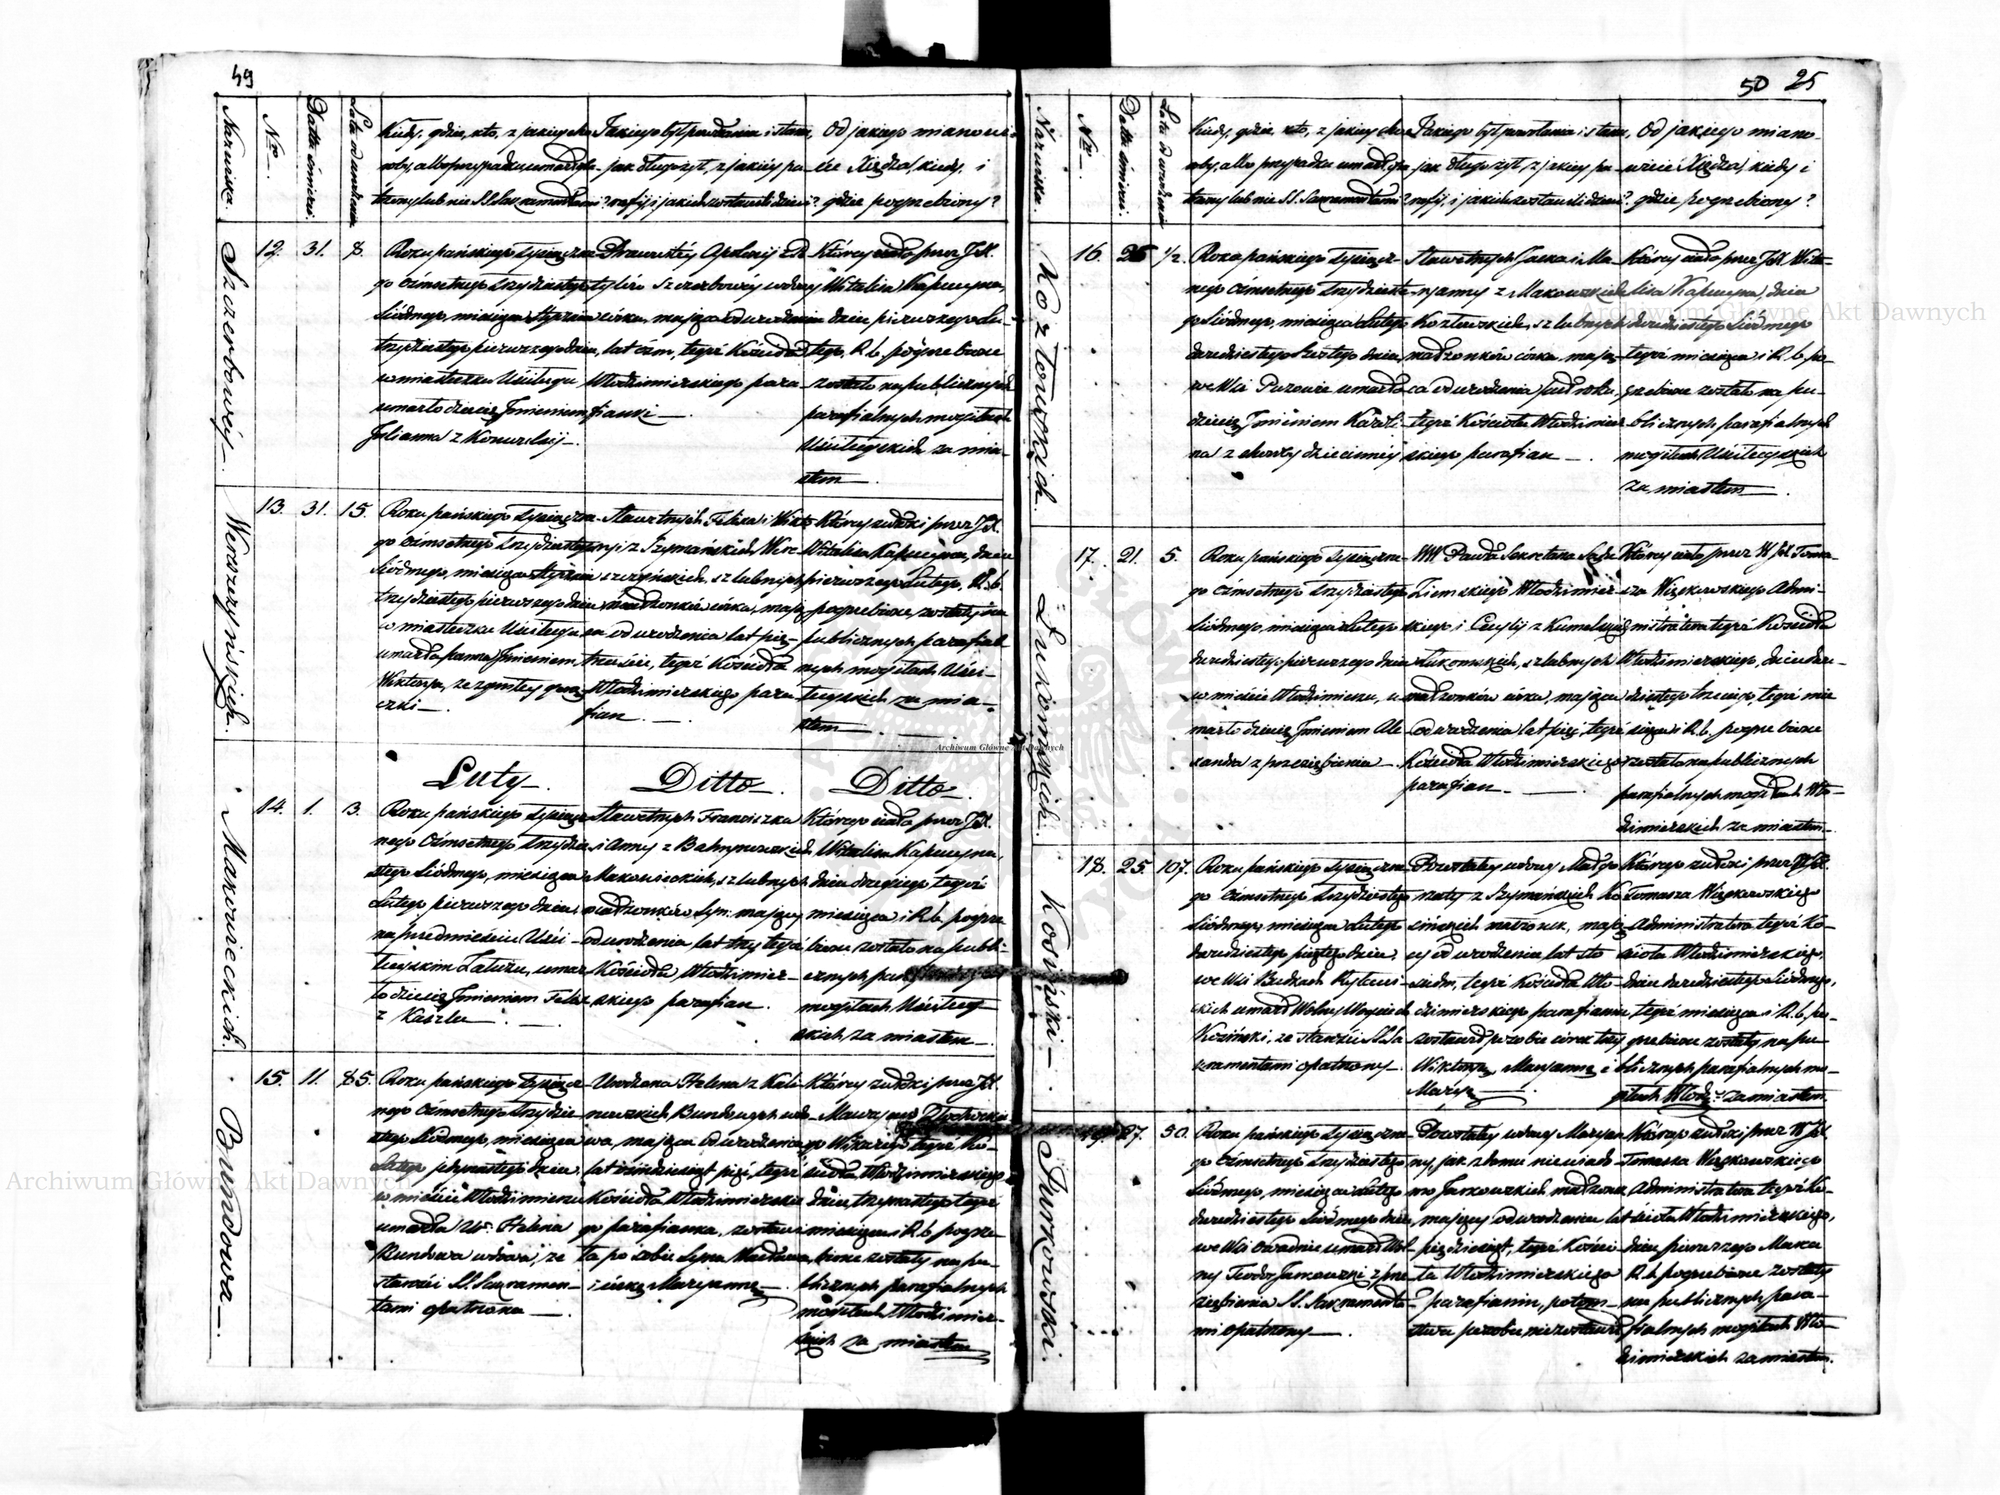 49
Nazwiska.
Nro
Datta śmierci.
Lata od urodzenia
Kiedy, gdzie, kto, z jakiey cho-
roby, albo przypadku umarł, opa-
trzony lub nie SS. Sakramentami?
Jakiego był powołania i stanu,
jak długo żył, z jakiey pa-
rafij, i jakich zostawił dzieci?
Od jakiego mianowi-
cie Xiędza, kiedy, i
gdzie pogrzebiony?
Szczerbowey.
12. 31. 8.
Roku pańskiego tysiączne-
go ośmsetnego trzydziestego
siódmego, miesiąca stycznia
trzydziestego pierwszego dnia,
w miasteczku Uściługu
umarło dziecię Jmieniem
Julianna z Konwulsij.
córka, mająca od urodzenia
lat ośm, tegoż Kościoła
Włodzimierskiego para-
fianki
Którey ciało przez JX.
Witalisa Kapucyna,
dnia pierwszego Lu-
tego, R. b. pogrzebione
zostało na publicznych
parafialnych mogiłach
Uściługskich za mia-
stem
Wereszczyńskich.
13. 31. 15.
Roku pańskiego tysiączne-
go ośmsetnego trzydziestego
siódmego, miesiąca stycznia
trzydziestego pierwszego dnia
w miasteczku Uściługu
umarła panna Jmieniem
Wiktorya, ze zgniłey gorą-
czki
Sławetnych Felixa i Wikto-
ryi z Szymańskich Were-
szczyńskich, szlubnych
małżonków córka, mają-
ca od urodzenia lat pię-
tnaście, tegoż Kościoła
Włodzimierskiego para-
fian.
Którey zwłoki przez JX.
Witalisa Kapucyna, dnia
pierwszego Lutego, R. b.
pogrzebione zostały na
publicznych parafial-
nych mogiłach Uści-
ługskich za mia-
stem
Luty. Ditto. Ditto.
Makowieckich.
14. 1. 3.
Roku pańskiego tysiącz-
nego ośmsetnego trzydzie-
stego siódmego, miesiąca
Lutego pierwszego dnia
na przedmieściu Uści-
ługskim umar-
ło dziecię Jmieniem Felix
z Kaszlu
Sławetnych Franciszka
i Anny z
Makowieckich, szlubnych
małżonków Syn, mający
od urodzenia lat trzy, tegoż
Kościoła Włodzimier-
skiego parafian.
Którego ciało przez JX.
Witalisa Kapucyna,
dnia drugiego tegoż
miesiąca i R. b. pogrze-
bione zostało na publi-
cznych parafialnych
mogiłach Uściług-
skich za miastem
Bundowa
15. 11. 85.
Roku pańskiego tysiącz-
nego ośmsetnego trzydzie-
stego siódmego, miesiąca
Lutego jedynastego dnia
w mieście Włodzimierzu
umarła Ur. Helena
Bundowa wdowa, ze
starości SS. Sakramen-
tami opatrzona
Urodzona Helena z Kali-
nowskich Bundowych wdo-
wa, mająca od urodzenia
lat ośmdziesiąt pięć, tegoż
Kościoła Włodzimierskie-
go parafianka, zostawi-
ła po sobie Syna
i córkę Maryannę
Którey zwłoki przez JX.
go Wikarego tegoż Ko-
ścioła Włodzimierskiego
dnia trzynastego tegoż
miesiąca i R. b. pogrze-
bione zostały na pu-
blicznych parafialnych
mogiłach Włodzimier-
skich za miastem
50 25
Nazwiska.
Nro
Datta śmierci.
Lata od urodzenia
Kiedy, gdzie, kto, z jakiey cho-
roby, albo przypadku umarł, opa-
trzony lub nie SS. Sakramentami?
Jakiego był powołania i stanu,
jak długo żył, z jakiey pa-
rafij, i jakich zostawił dzieci?
Od jakiego miano-
wicie Xiędza, kiedy i
gdzie pogrzebiony?
Kozłowskich.
16. 26 1/2.
Roku pańskiego tysiącz-
nego ośmsetnego trzydzieste-
go siódmego, miesiąca Lutego
dwudziestego szóstego dnia,
we Wsi umarło
dziecię Jmieniem Karoli-
na z choroby dziecinney
Sławetnych i Ma-
ryanny z Makowskich
Kozłowskich, szlubnych
małżonków córka, mają-
ca od urodzenia puł roku,
tegoż Kościoła Włodzimier-
skiego parafian
Którey ciało przez JX. Wita-
lisa Kapucyna, dnia
dwudziestego siódmego
tegoż miesiąca i R. b. po-
grzebione zostało na pu-
blicznych parafialnych
mogiłach Uściługskich
za miastem
Łukomskich.
17. 21. 5.
Roku pańskiego tysiączne-
go ośmsetnego trzydziestego
siódmego, miesiąca Lutego
dwudziestego pierwszego dnia
w mieście Włodzimierzu, u-
marło dziecię Jmieniem Ale-
xandra z przeziębienia
WW Pawła Sekretarza Sądu
Ziemskiego Włodzimier-
skiego i Cecylij z
Łukomskich, szlubnych
małżonków córka, mająca
od urodzenia lat pięć, tegoż
Kościoła Włodzimierskiego
parafian.
Którey ciało przez W JX. Toma-
sza Więckowskiego Admi-
nistratora tegoż Kościoła
Włodzimierskiego, dnia dwu-
dziestego trzeciego, tegoż mie-
siąca i R. b. pogrzebione
zostało na publicznych
parafialnych mogiłach Wło-
dzimierskich za miastem.
Kosiński
18. 25. 107.
Roku pańskiego tysiączne-
go ośmsetnego trzydziestego
siódmego, miesiąca Lutego
dwudziestego piątego dnia,
we Wsi Budkach
umarł Wolny Woyciech
Kosiński, ze starości SS. Sa-
kramentami opatrzony.
Pozostały wdowy Małgo-
rzaty z Szymańskich Ko-
sińskich małżonek, mają-
cy od urodzenia lat sto
siedm, tegoż Kościoła Wło-
dzimierskiego parafianin
zostawił po sobie córek trzy
Wiktoryę, Maryannę i
Maryę
Którego zwłoki przez W JX.
Tomasza Więckowskiego
Administratora tegoż Ko-
ścioła Włodzimierskiego,
dnia dwudziestego siódmego,
tegoż miesiąca i R. b. po-
grzebione zostały na pu-
blicznych parafialnych mo-
giłach Włodz. za miastem.
Jurkowski.
27. 50.
Roku pańskiego tysiączne-
go ośmsetnego trzydziestego
siódmego, miesiąca Lutego
dwudziestego siódmego dnia,
we Wsi umarł Wol-
ny Teodor Jurkowski, z prze-
ziębienia SS. Sakramenta-
mi opatrzony
Pozostały wdowy Maryan-
ny, jak z domu niewiado-
mo Jurkowskich małżonek
mający od urodzenia lat
pięćdziesiąt, tegoż Kościo-
ła Włodzimierskiego
parafianin, potom-
stwa po sobie niezostawił
Którego zwłoki przez W JX.
Tomasza Więckowskiego
Administratora tegoż Ko-
ścioła Włodzimierskiego,
dnia pierwszego Marca
R. b. pogrzebione zostały
na publicznych para-
fialnych mogiłach Wło-
dzimierskich za miastem.
Archiwum Główne Akt Dawnych
Archiwum Główne Akt Dawnych
Archiwum Główne Akt Dawnych